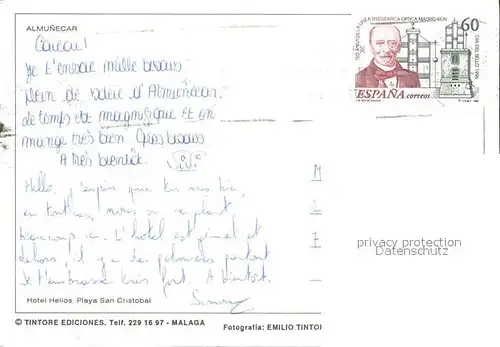 ALMUÑECAR
Coucou!
Je t'envoie mille bisous
plein de soleil d'Almuñecar
le temps est magnifique et on
mange très bien Gros bisous
A très bientôt. Sissi
Hello, j'espère que tu vas bien,
en tout cas, nous on se plaît
beaucoup ici. L'hôtel est génial et
dehors, il y a des palmiers partout
Je t'embrasse très fort. A bientôt.
Hotel Helios. Playa San Cristobal
© TINTORE EDICIONES. Telf. 229 16 97 - MALAGA
Fotografía: EMILIO TINTOR
60
DIA DEL SELLO 1996
ESPAÑA correos
privacy protection
Datenschutz